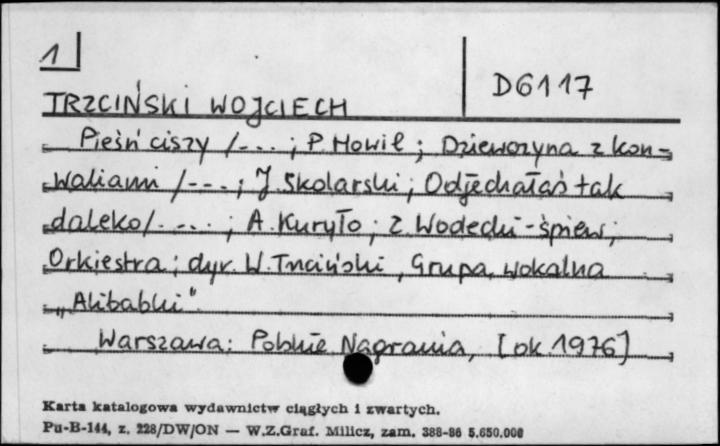 1
D6117
TRZCIŃSKI WOJCIECH
Pieśń ciszy /-... ; P. Howił ; Dziewczyna z kon-
waliami /--- ; J. Skolarski ; Odjechałaś tak
daleko /. ... ; A. Kuryło ; Z. Wodecki - śpiew,
Orkiestra ; dyr. W. Trzciński, Grupa wokalna
„Alibabki”.
Warszawa : Polskie Nagrania, [ok. 1976]
Karta katalogowa wydawnictw ciągłych i zwartych.
Pu-B-144, z. 228/DW/ON — W.Z.Graf. Milicz, zam. 388-86 5.650.000